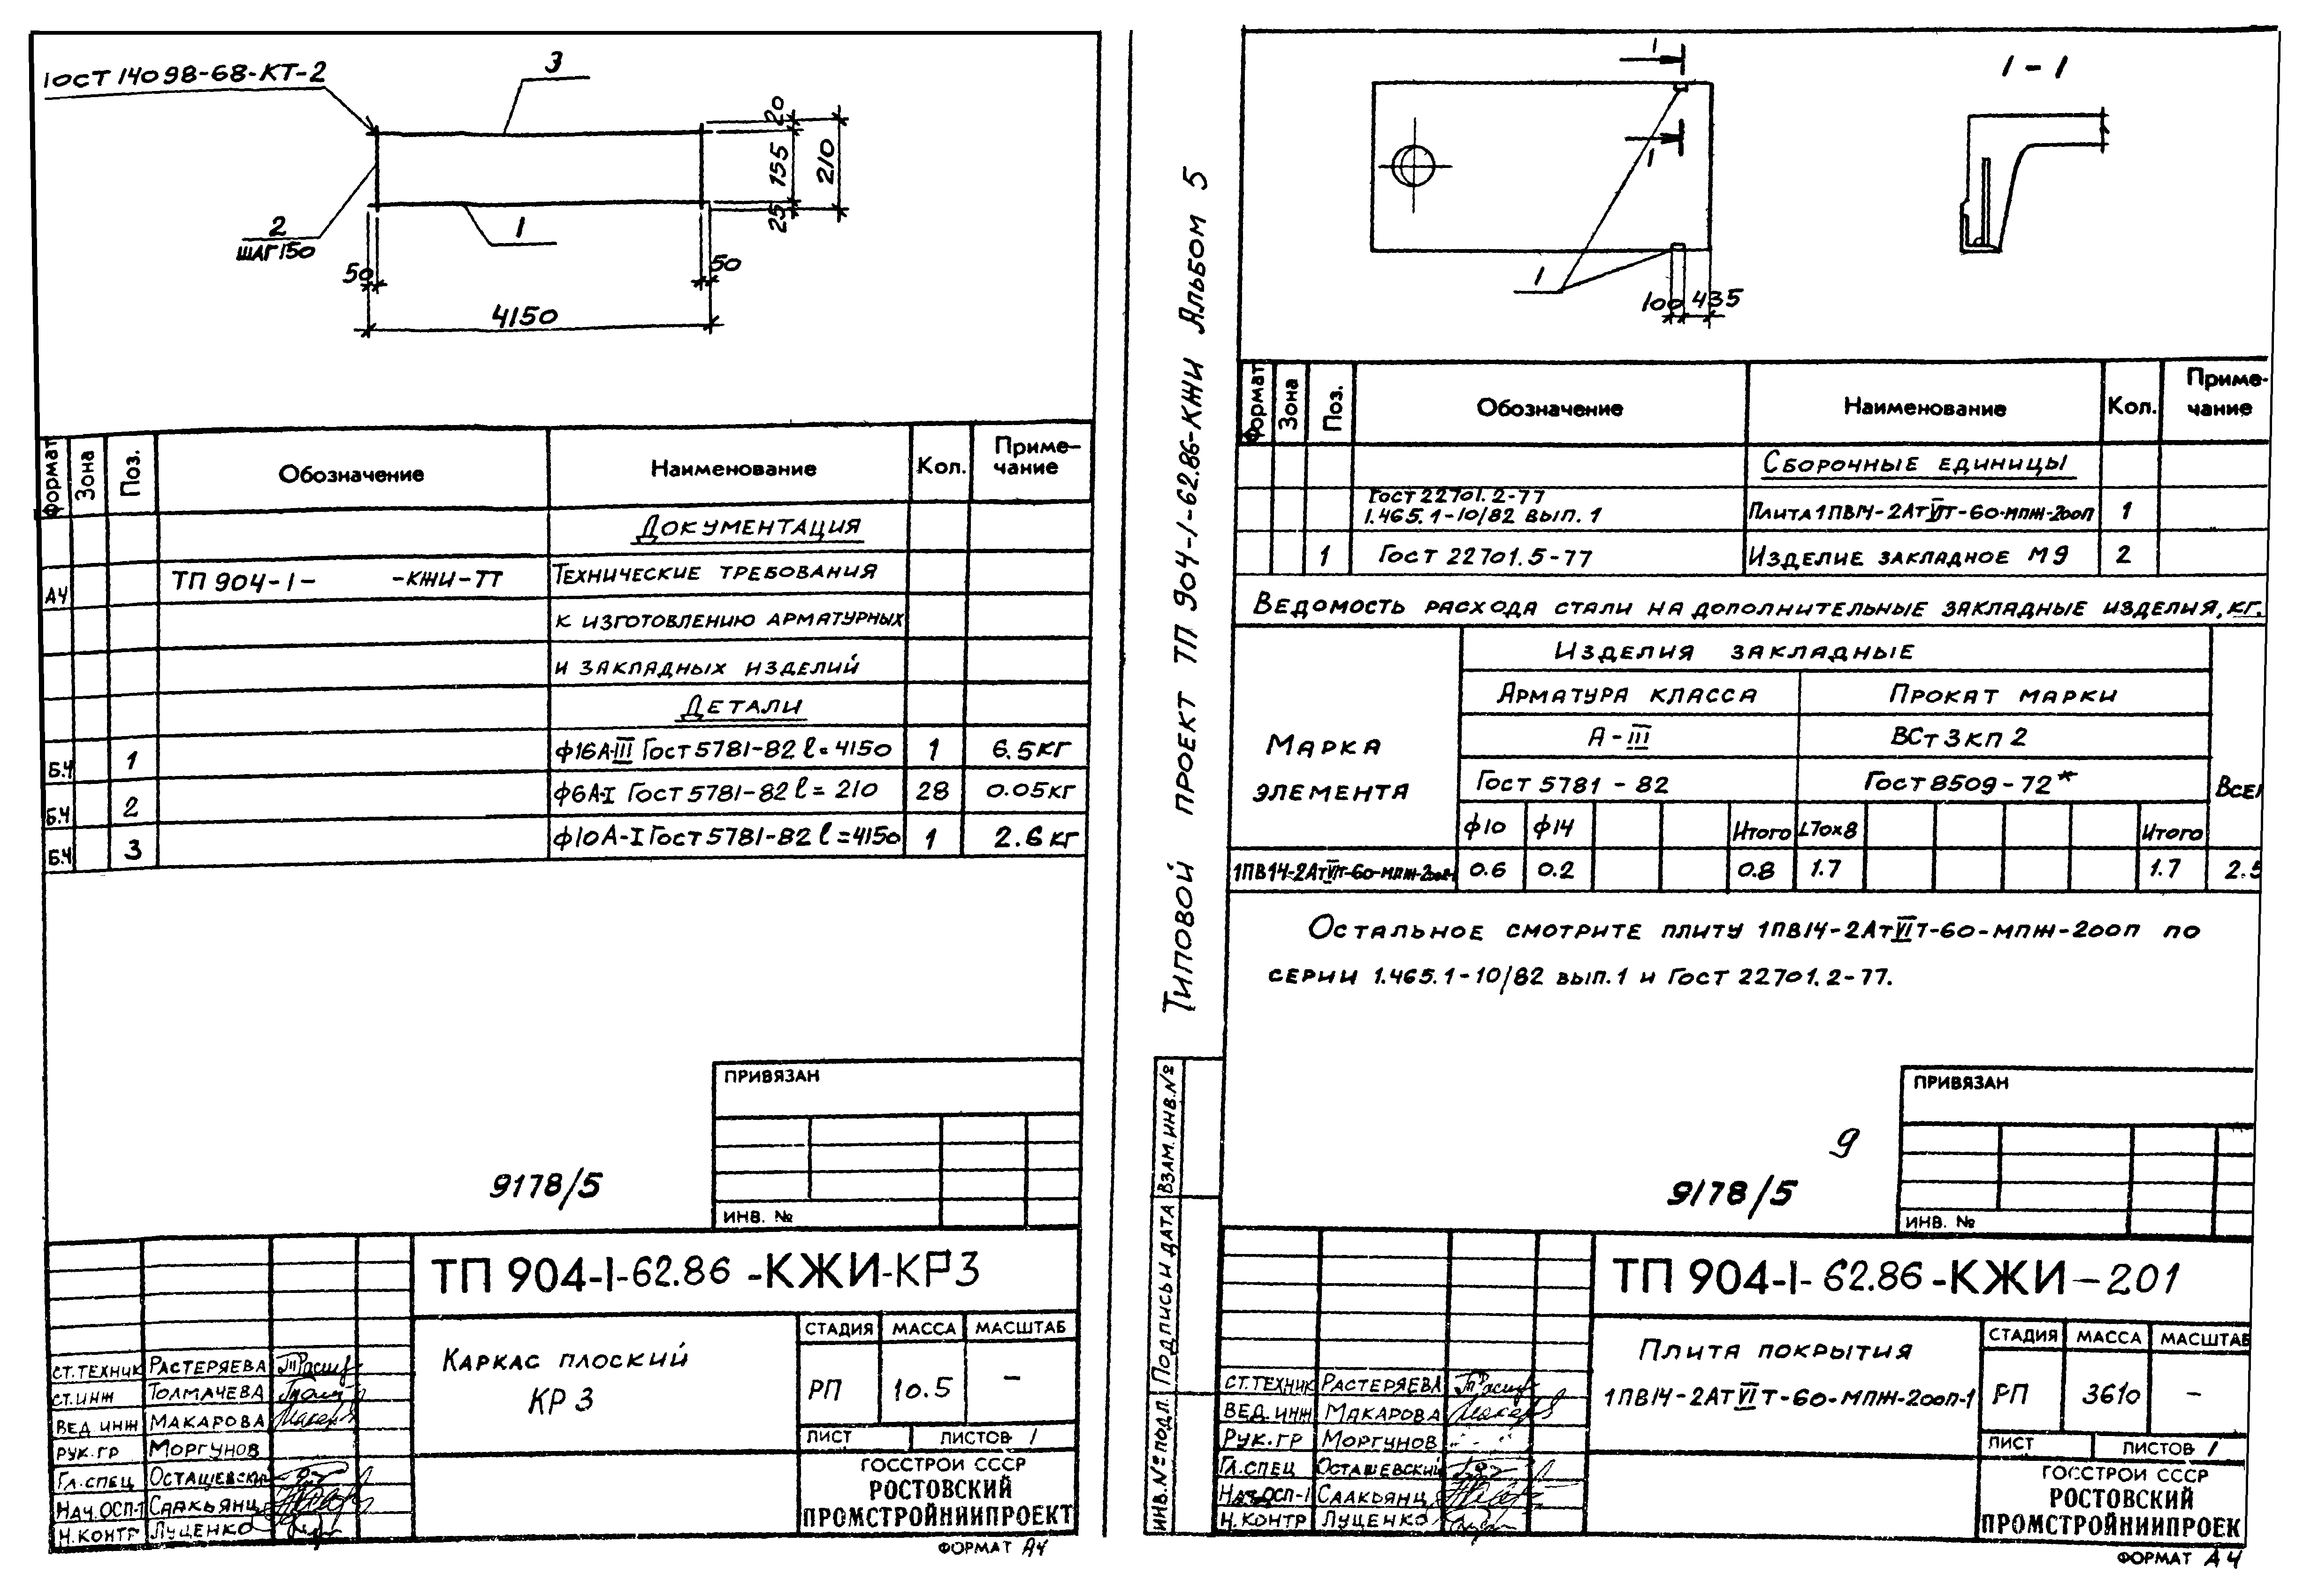 ГОСТ 14098-68-КТ-2
3
20
155
210
25
2
ШАГ 150
1
50
50
4150
Формат
Зона
Поз.
Обозначение
Наименование
Кол.
Приме-
чание
Документация
А4 ТП 904-1- -КЖИ-ТТ Технические требования
к изготовлению арматурных
и закладных изделий
Детали
Б.Ч 1 ф16А-III Гост 5781-82 l=4150 1 6.5кг
Б.Ч 2 ф6А-I Гост 5781-82 l=210 28 0.05кг
Б.Ч 3 ф10А-I Гост 5781-82 l=4150 1 2.6кг
ПРИВЯЗАН
9178/5
ИНВ. №
ТП 904-1-62.86-КЖИ-КР3
Каркас плоский
КР 3
СТАДИЯ МАССА МАСШТАБ
РП 10.5 –
ЛИСТ ЛИСТОВ 1
ГОССТРОЙ СССР
РОСТОВСКИЙ
ПРОМСТРОЙНИИПРОЕКТ
Ст.техник Растеряева
Ст.инж Толмачева
Вед.инж Макарова
Рук.гр Моргунов
Гл.спец Осташевский
Нач.ОСП-1 Саакьянц
Н.контр Луценко
ФОРМАТ А4
Типовой проект ТП 904-1-62.86-КЖИ Альбом 5
1
1
1-1
1
100 435
Формат
Зона
Поз.
Обозначение
Наименование
Кол.
Приме-
чание
Сборочные единицы
Гост 22701.2-77
1.465.1-10/82 вып.1 Плита 1ПВ14-2АтVIТ-60-МПЖ-200П 1
1 Гост 22701.5-77 Изделие закладное М9 2
Ведомость расхода стали на дополнительные закладные изделия, кг.
Марка
элемента
Изделия закладные
Арматура класса Прокат марки
А-III ВСт3кп2
Гост 5781-82 Гост 8509-72*
ф10 ф14 Итого L70х8 Итого
1ПВ14-2АтVIТ-60-МПЖ-200П-1 0.6 0.2 0.8 1.7 1.7 2.5
Остальное смотрите плиту 1ПВ14-2АтVIТ-60-МПЖ-200П по
серии 1.465.1-10/82 вып.1 и Гост 22701.2-77.
ПРИВЯЗАН
9
9178/5
ИНВ. №
Взам.инв.№
Подпись и дата
Инв.№ подл.
ТП 904-1-62.86-КЖИ-201
Плита покрытия
1ПВ14-2АтVIТ-60-МПЖ-200П-1
СТАДИЯ МАССА МАСШТАБ
РП 3610 –
ЛИСТ ЛИСТОВ 1
ГОССТРОЙ СССР
РОСТОВСКИЙ
ПРОМСТРОЙНИИПРОЕК
Ст.техник Растеряева
Вед.инж Макарова
Рук.гр Моргунов
Гл.спец Осташевский
Нач.ОСП-1 Саакьянц
Н.контр Луценко
ФОРМАТ А4